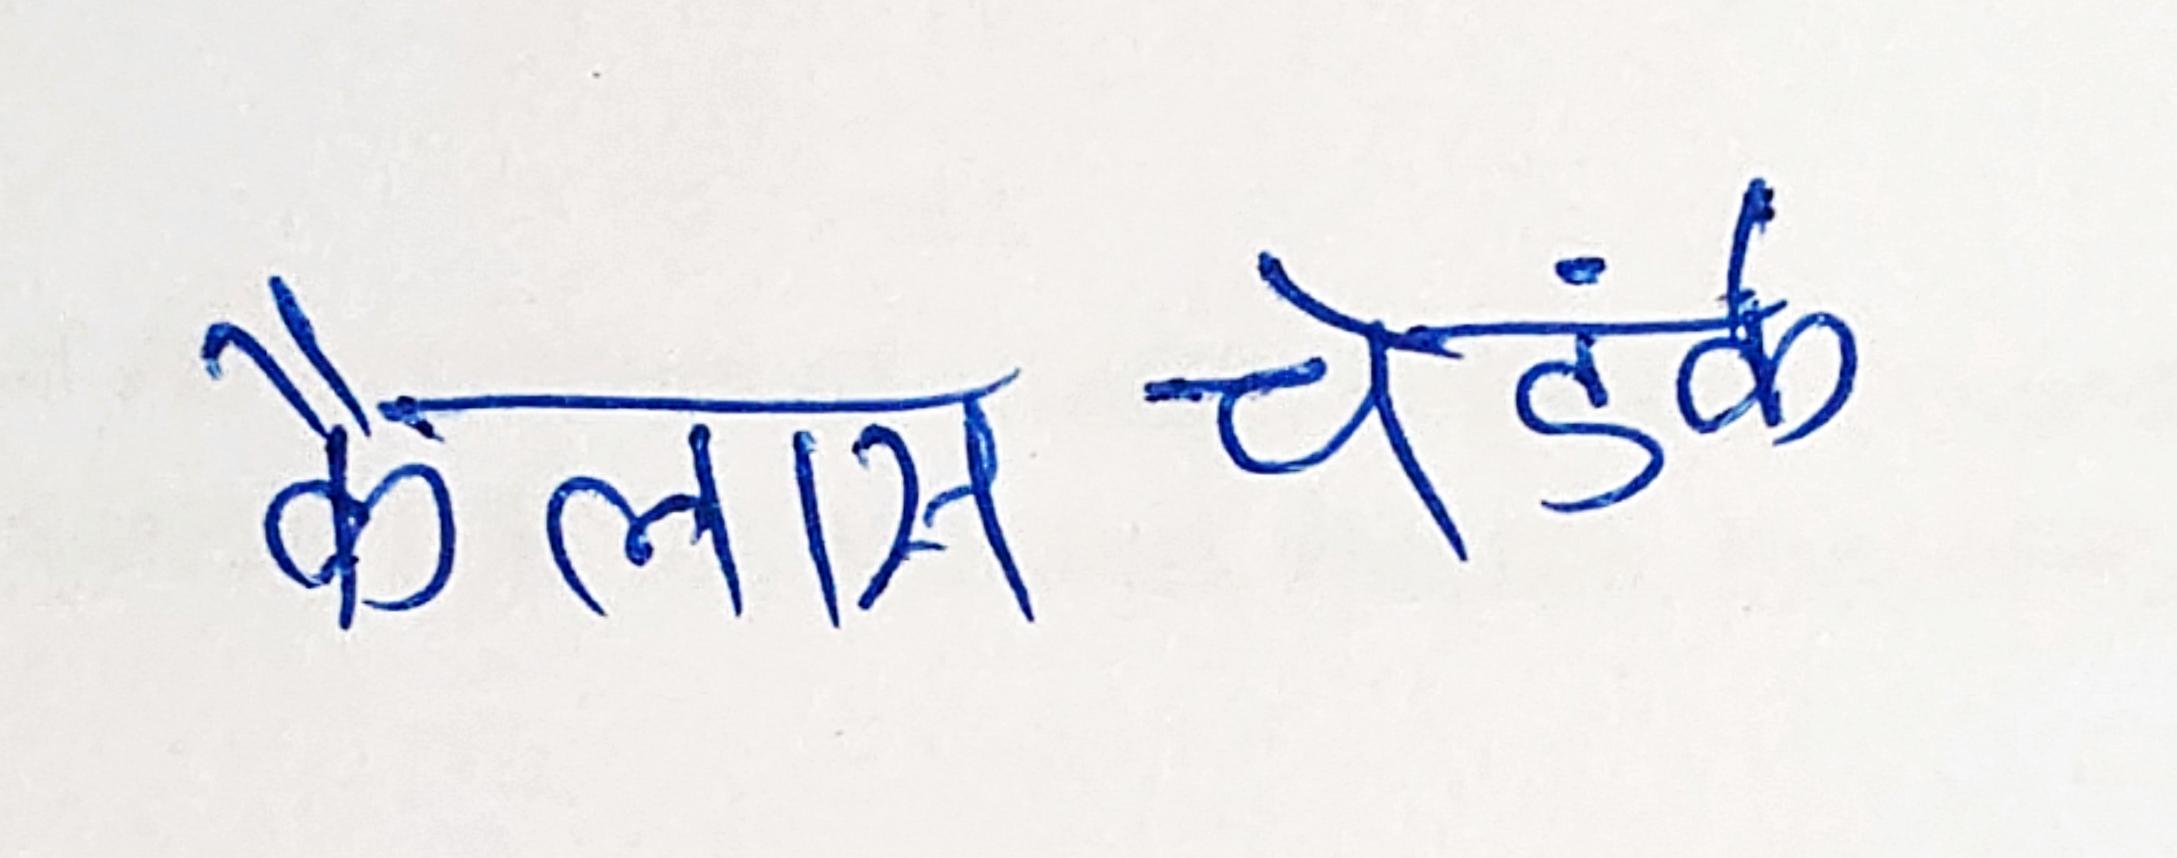 कैलास चेडंक